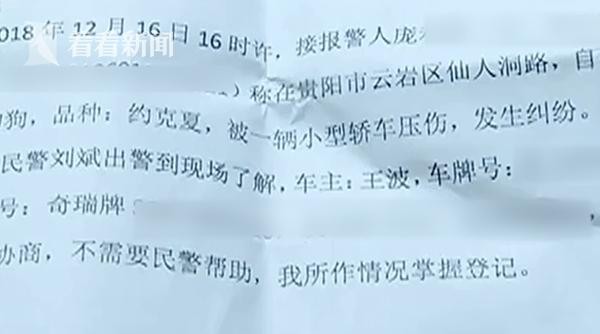 看看新闻
018 年 12 月 16 日 16 时许，接报警人庞
）称在贵阳市云岩区仙人洞路，自
狗，品种：约克夏，被一辆小型轿车压伤，发生纠纷。
民警刘斌出警到现场了解，车主：王波，车牌号：
号：奇瑞牌
协商，不需要民警帮助，我所作情况掌握登记。